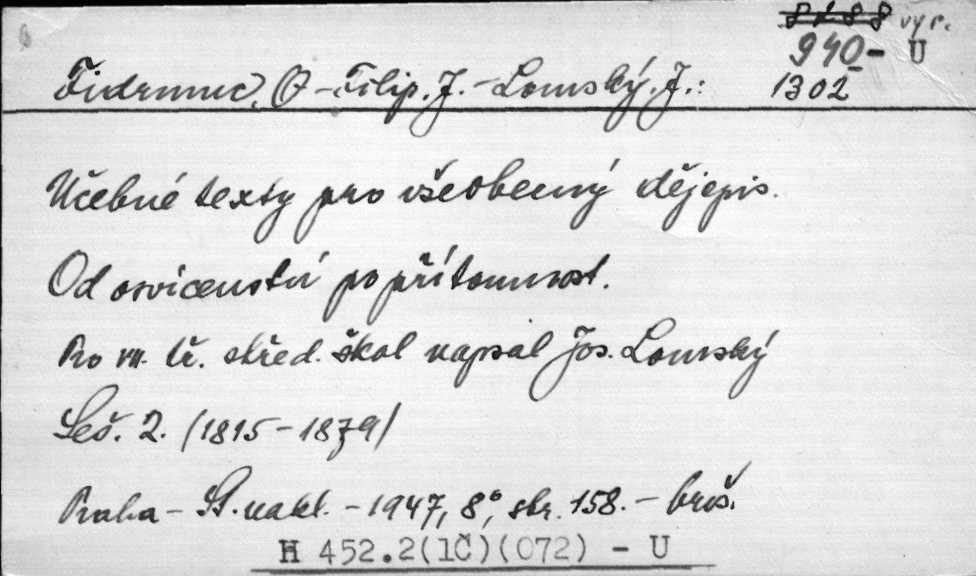 8188 vyř.
940- U
Fidrmuc, O - Filip. J. - Lomský. J.: 1302
Učebné texty pro všeobecný dějepis.
Od osvícenství po přítomnost.
Pro tř. střed. škol napsal Jos. Lomský
Seš. 2. (1815-1879)
Praha - St. nakl. - 1947, 8°, str. 158. - brož.
H 452.2(1Č)(072) - U